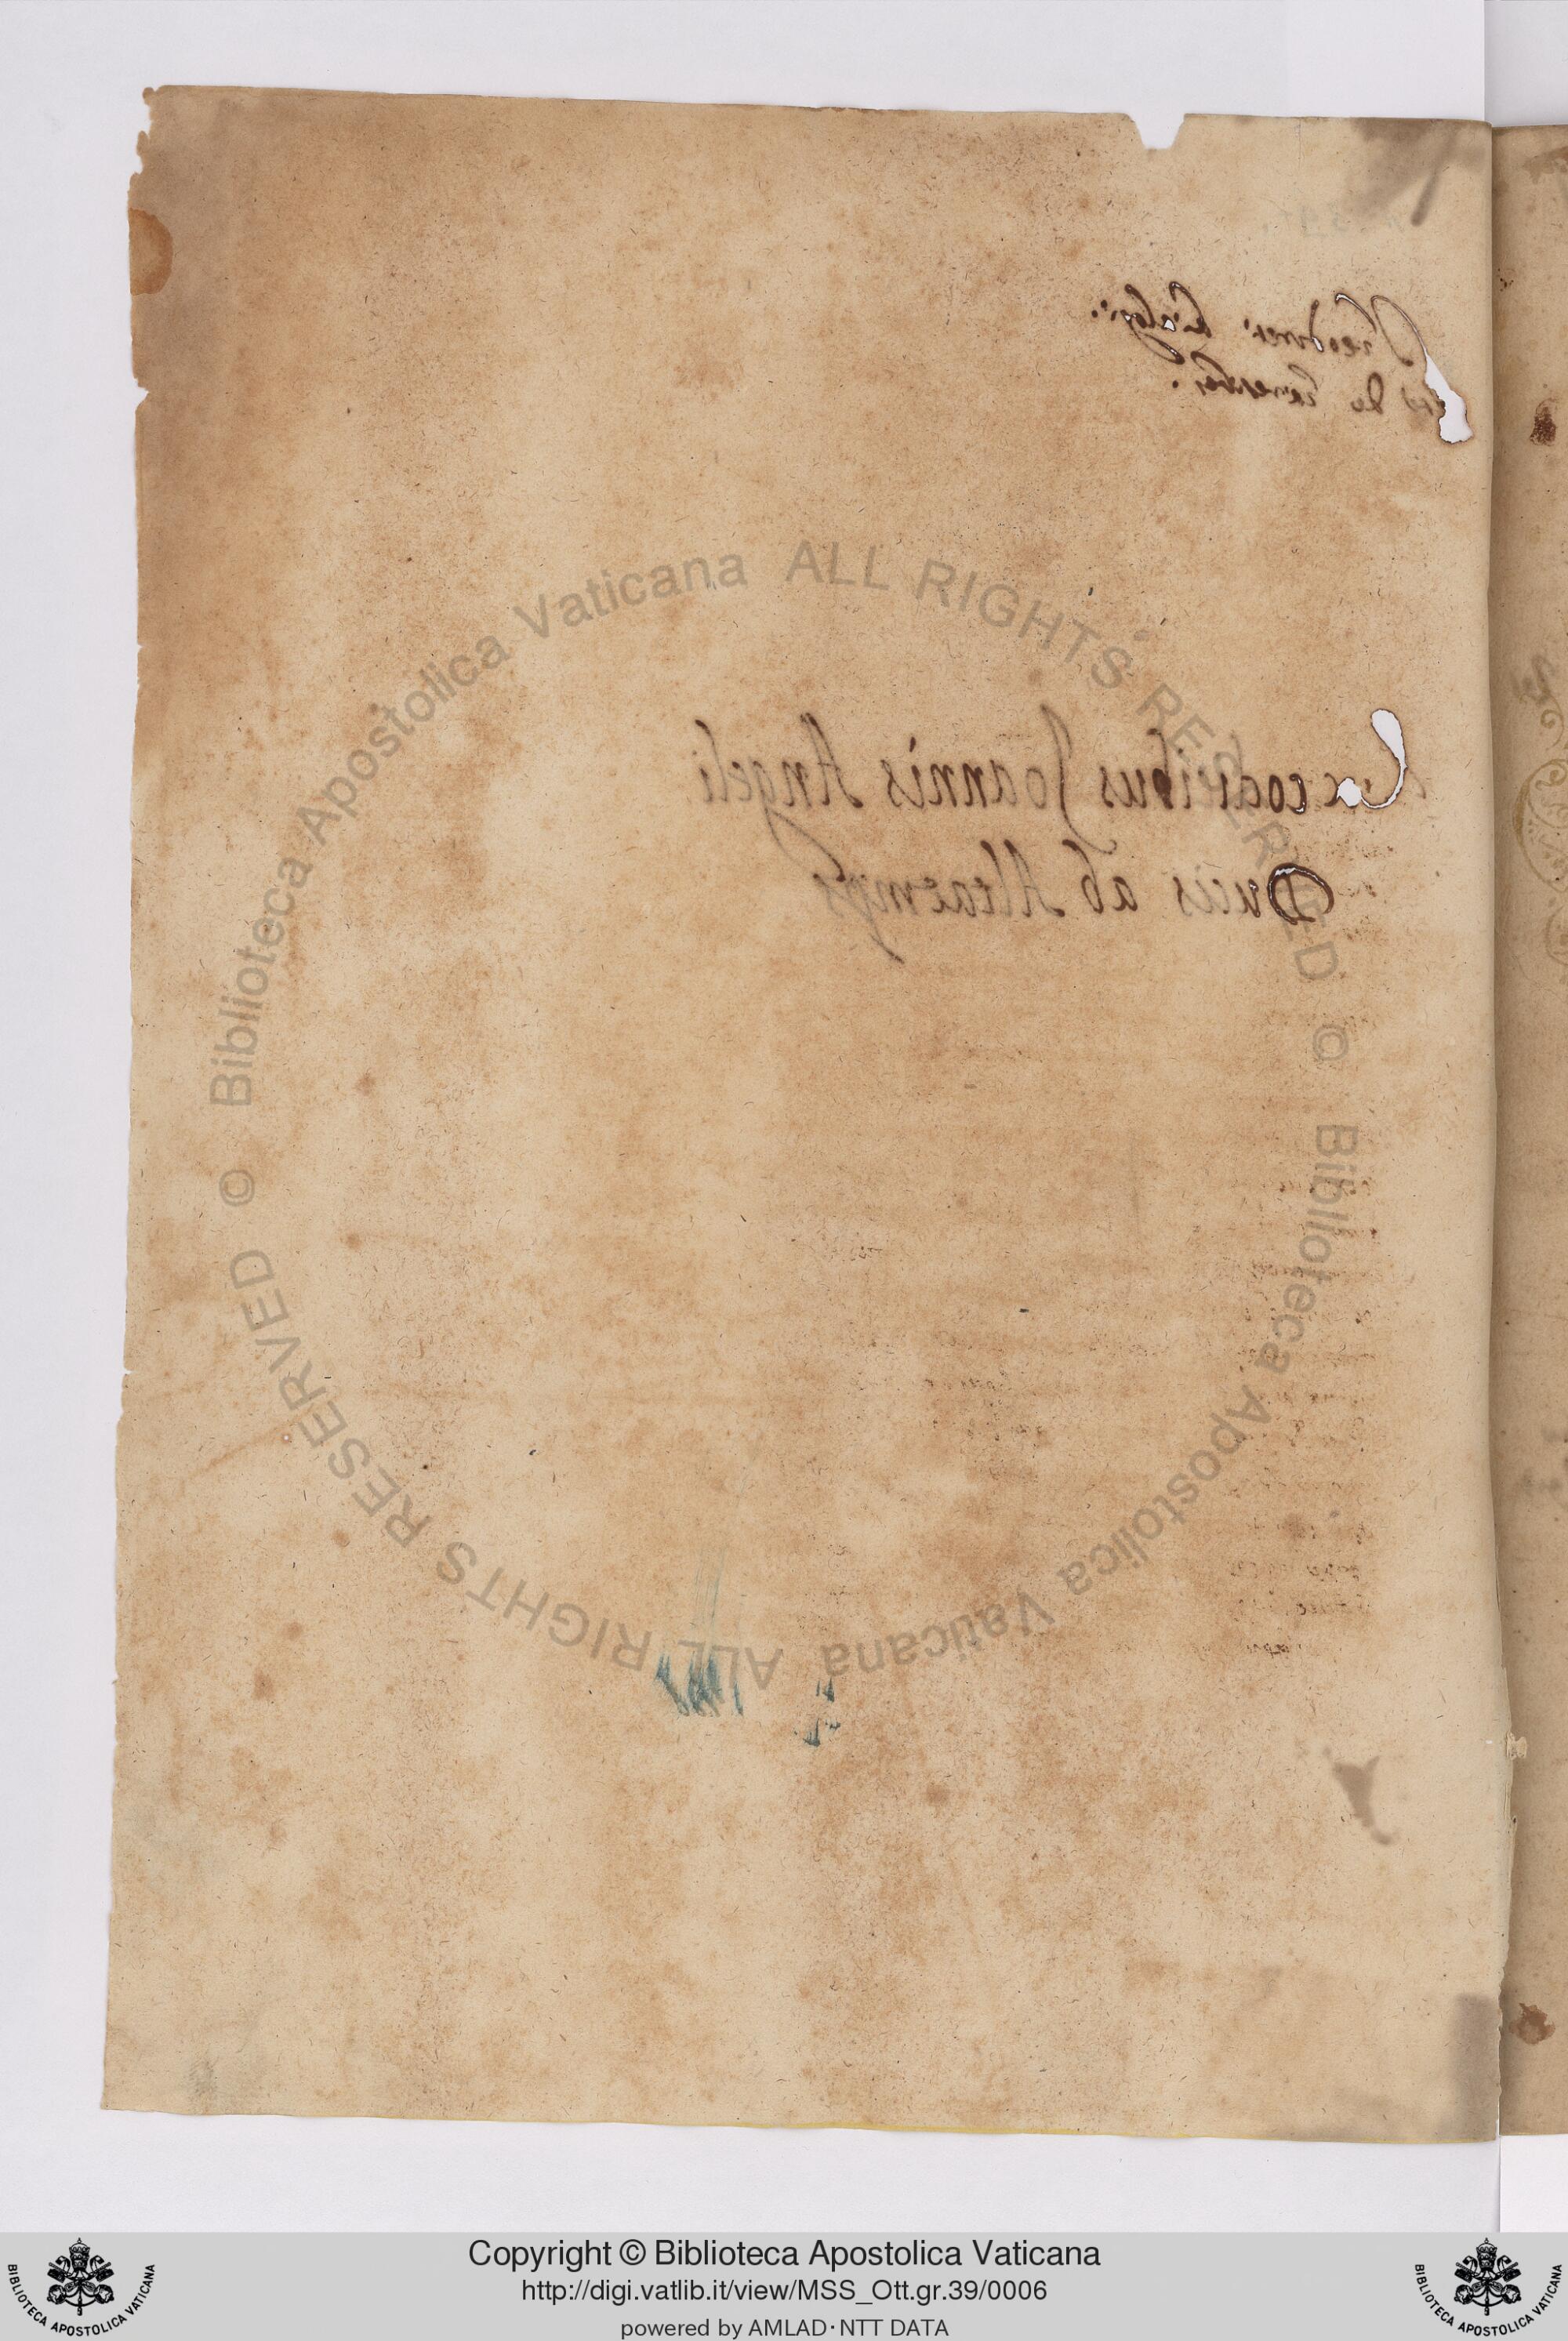 Theodoreti
de
Ex codicibus Joannis Angeli
Ducis ab Altaemps
© Biblioteca Apostolica Vaticana ALL RIGHTS RESERVED © Biblioteca Apostolica Vaticana ALL RIGHTS RESERVED
Copyright © Biblioteca Apostolica Vaticana
http://digi.vatlib.it/view/MSS_Ott.gr.39/0006
powered by AMLAD·NTT DATA
BIBLIOTECA APOSTOLICA VATICANA
BIBLIOTECA APOSTOLICA VATICANA